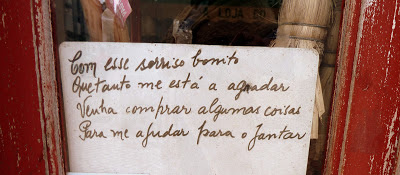 LOJA DO
Com esse sorriso bonito
Que tanto me está a agradar
Venha comprar algumas coisas
Para me ajudar para o jantar